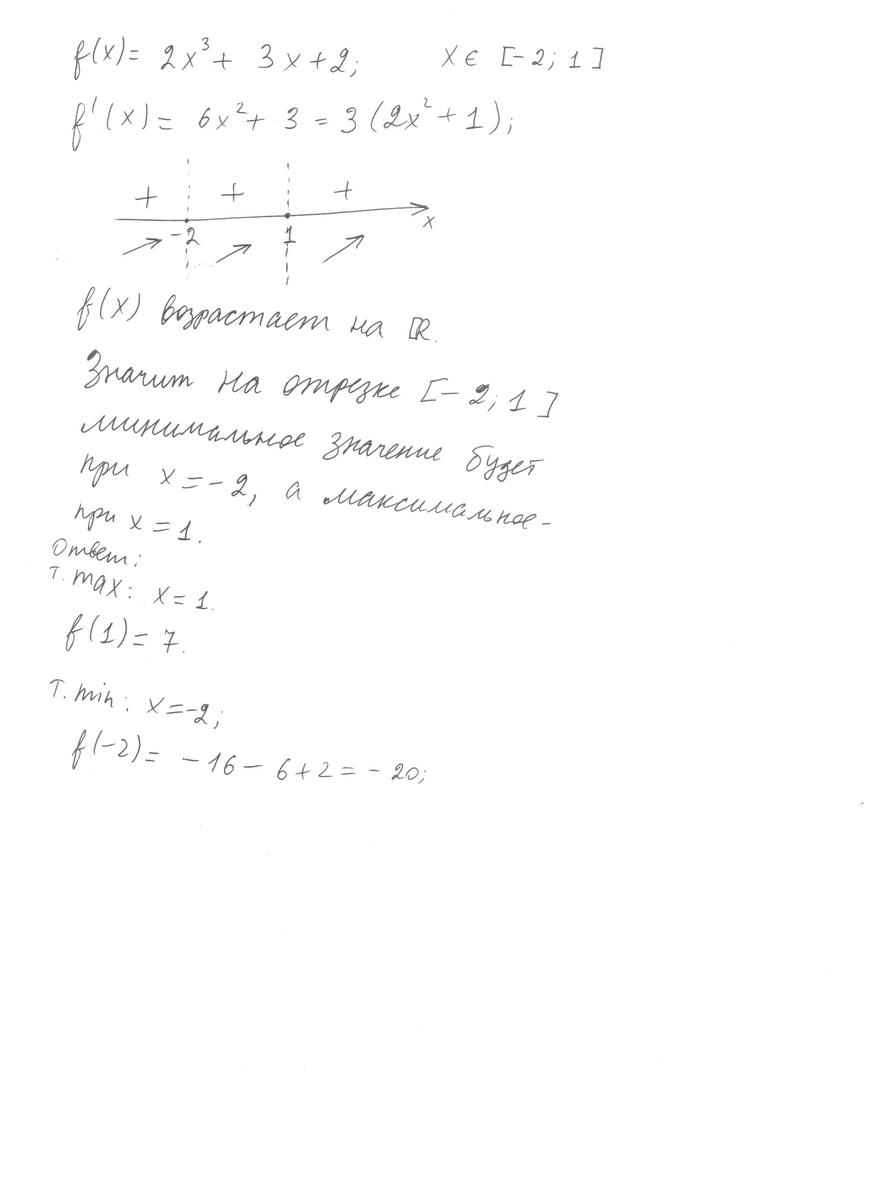 f(x) = 2x³ + 3x + 2; x ∈ [-2; 1]
f'(x) = 6x² + 3 = 3(2x² + 1);
+ + +
-2 1 x
f(x) возрастает на ℝ.
Значит на отрезке [-2; 1]
минимальное значение будет
при x = -2, а максимальное -
при x = 1.
Ответ:
т. max: x = 1.
f(1) = 7.
т. min: x = -2;
f(-2) = -16 - 6 + 2 = -20;